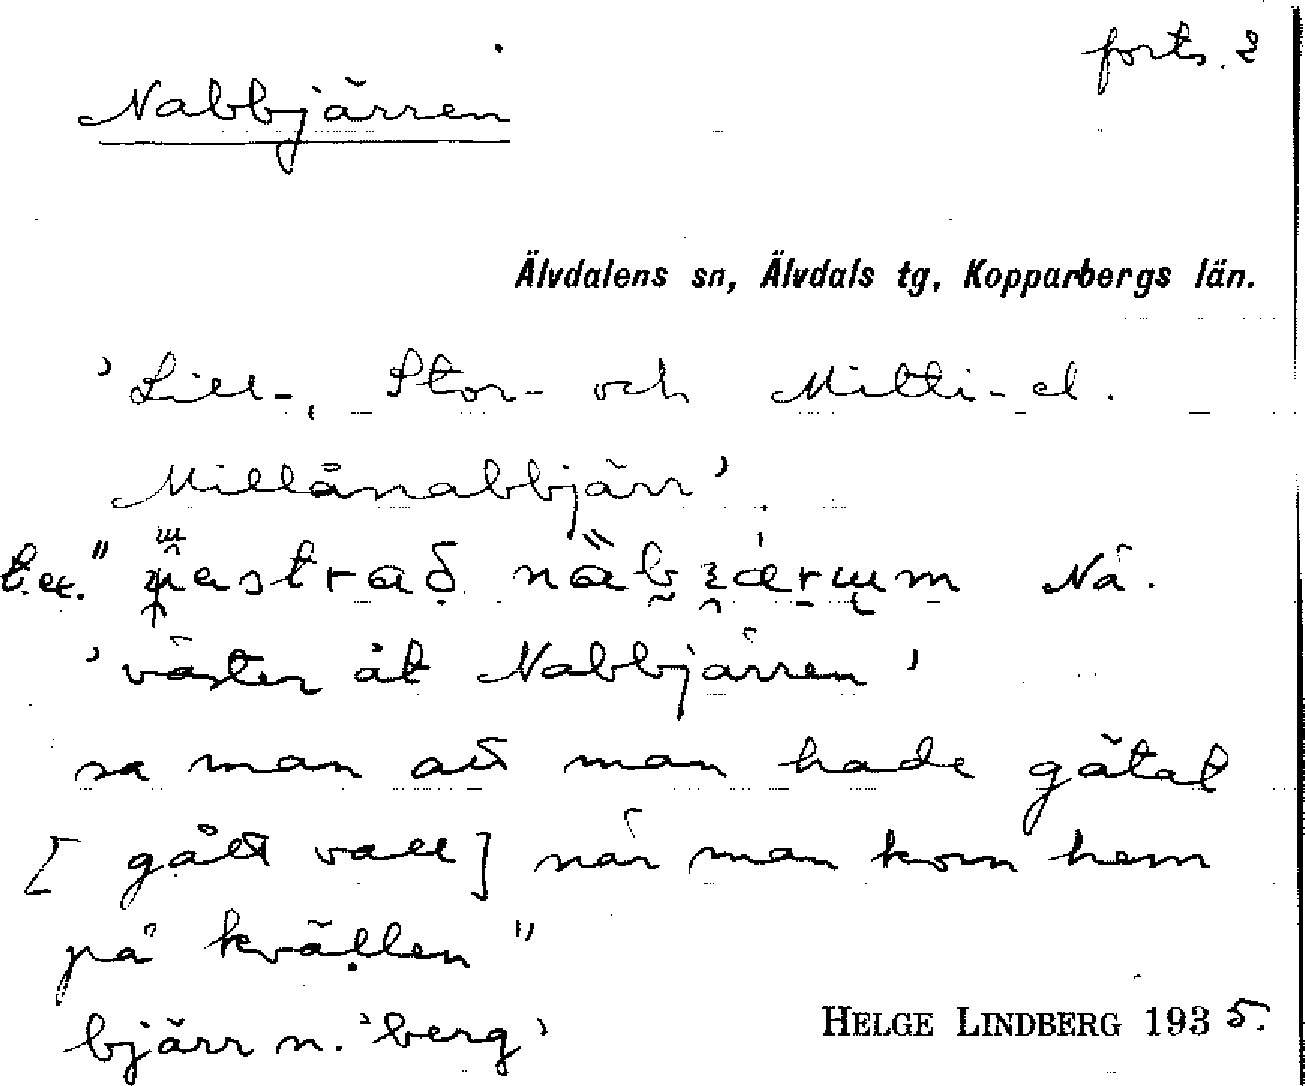 forts. 2
Nabbjärren
Älvdalens sn, Älvdals tg, Kopparbergs län.
'Lill-, Stor- och Mitti- el.
Millånabbjärr'.
t.ex. " Nå.
'väster åt Nabbjärren'
sa man att man hade gätat
[gått vall] när man kom hem
på kvällen"
bjärr n. 'berg'
HELGE LINDBERG 1935.